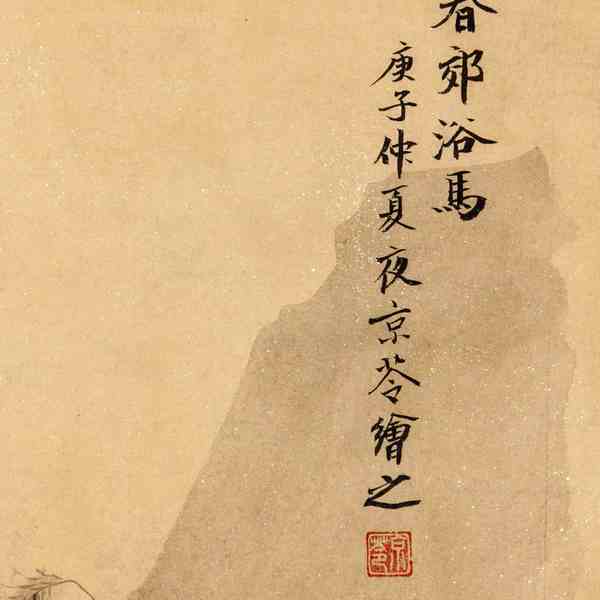 春郊浴馬
庚子仲夏夜京苓繪之
京苓